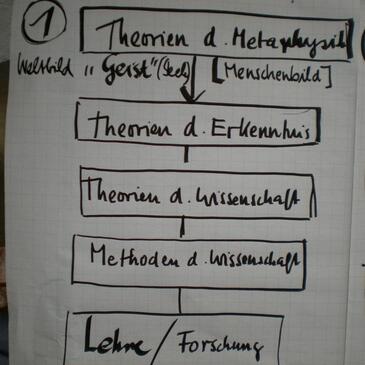 1
Theorien d. Metaphysik
Weltbild „Geist" (Seele) [Menschenbild]
Theorien d. Erkenntnis
Theorien d. Wissenschaft
Methoden d. Wissenschaft
Lehre / Forschung